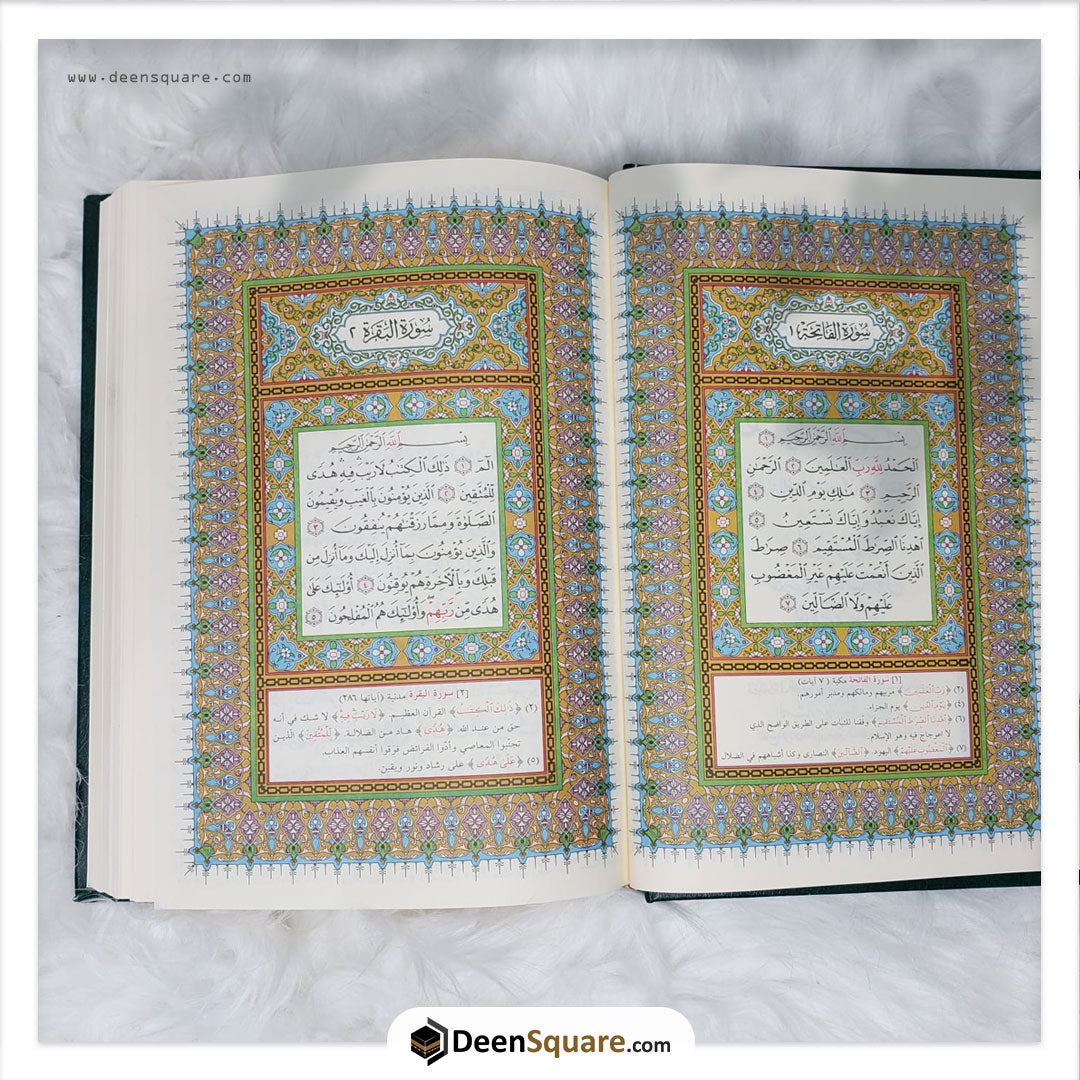 www.deensquare.com
سُورَةُ الفَاتِحَة ١
بِسْمِ اللَّهِ الرَّحْمَٰنِ الرَّحِيمِ ١
الْحَمْدُ لِلَّهِ رَبِّ الْعَٰلَمِينَ ٢ الرَّحْمَٰنِ
الرَّحِيمِ ٣ مَٰلِكِ يَوْمِ الدِّينِ ٤
إِيَّاكَ نَعْبُدُ وَإِيَّاكَ نَسْتَعِينُ ٥
اهْدِنَا الصِّرَٰطَ الْمُسْتَقِيمَ ٦ صِرَٰطَ
الَّذِينَ أَنْعَمْتَ عَلَيْهِمْ غَيْرِ الْمَغْضُوبِ
عَلَيْهِمْ وَلَا الضَّالِّينَ ٧
[١] سورة الفاتحة مكية (٧ آيات)
(٢) ﴿رَبِّ الْعَٰلَمِينَ﴾ مربيهم ومالكهم ومدبر أمورهم.
(٤) ﴿يَوْمِ الدِّينِ﴾ يوم الجزاء.
(٦) ﴿اهْدِنَا الصِّرَٰطَ الْمُسْتَقِيمَ﴾ وفقنا للثبات على الطريق الواضح الذي
لا اعوجاج فيه وهو الإسلام.
(٧) ﴿الْمَغْضُوبِ عَلَيْهِمْ﴾ اليهود. ﴿الضَّالِّينَ﴾ النصارى وكذا أشباههم في الضلال
سُورَةُ البَقَرَةِ ٢
بِسْمِ اللَّهِ الرَّحْمَٰنِ الرَّحِيمِ
الٓمٓ ١ ذَٰلِكَ الْكِتَٰبُ لَا رَيْبَ ۛ فِيهِ ۛ هُدًى
لِّلْمُتَّقِينَ ٢ الَّذِينَ يُؤْمِنُونَ بِالْغَيْبِ وَيُقِيمُونَ
الصَّلَوٰةَ وَمِمَّا رَزَقْنَٰهُمْ يُنفِقُونَ ٣
وَالَّذِينَ يُؤْمِنُونَ بِمَا أُنزِلَ إِلَيْكَ وَمَا أُنزِلَ مِن
قَبْلِكَ وَبِالْآخِرَةِ هُمْ يُوقِنُونَ ٤ أُولَٰئِكَ عَلَىٰ
هُدًى مِّن رَّبِّهِمْ ۖ وَأُولَٰئِكَ هُمُ الْمُفْلِحُونَ ٥
[٢] سورة البقرة مدنية (آياتها ٢٨٦)
(٢) ﴿ذَٰلِكَ الْكِتَٰبُ﴾ القرآن العظيم. ﴿لَا رَيْبَ فِيهِ﴾ لا شك في أنه
حق من عند الله. ﴿هُدًى﴾ هاد من الضلالة. ﴿لِّلْمُتَّقِينَ﴾ الذين
تجنبوا المعاصي وأدّوا الفرائض فوقوا أنفسهم العذاب.
(٥) ﴿عَلَىٰ هُدًى﴾ على رشاد ونور ويقين.
DeenSquare.com